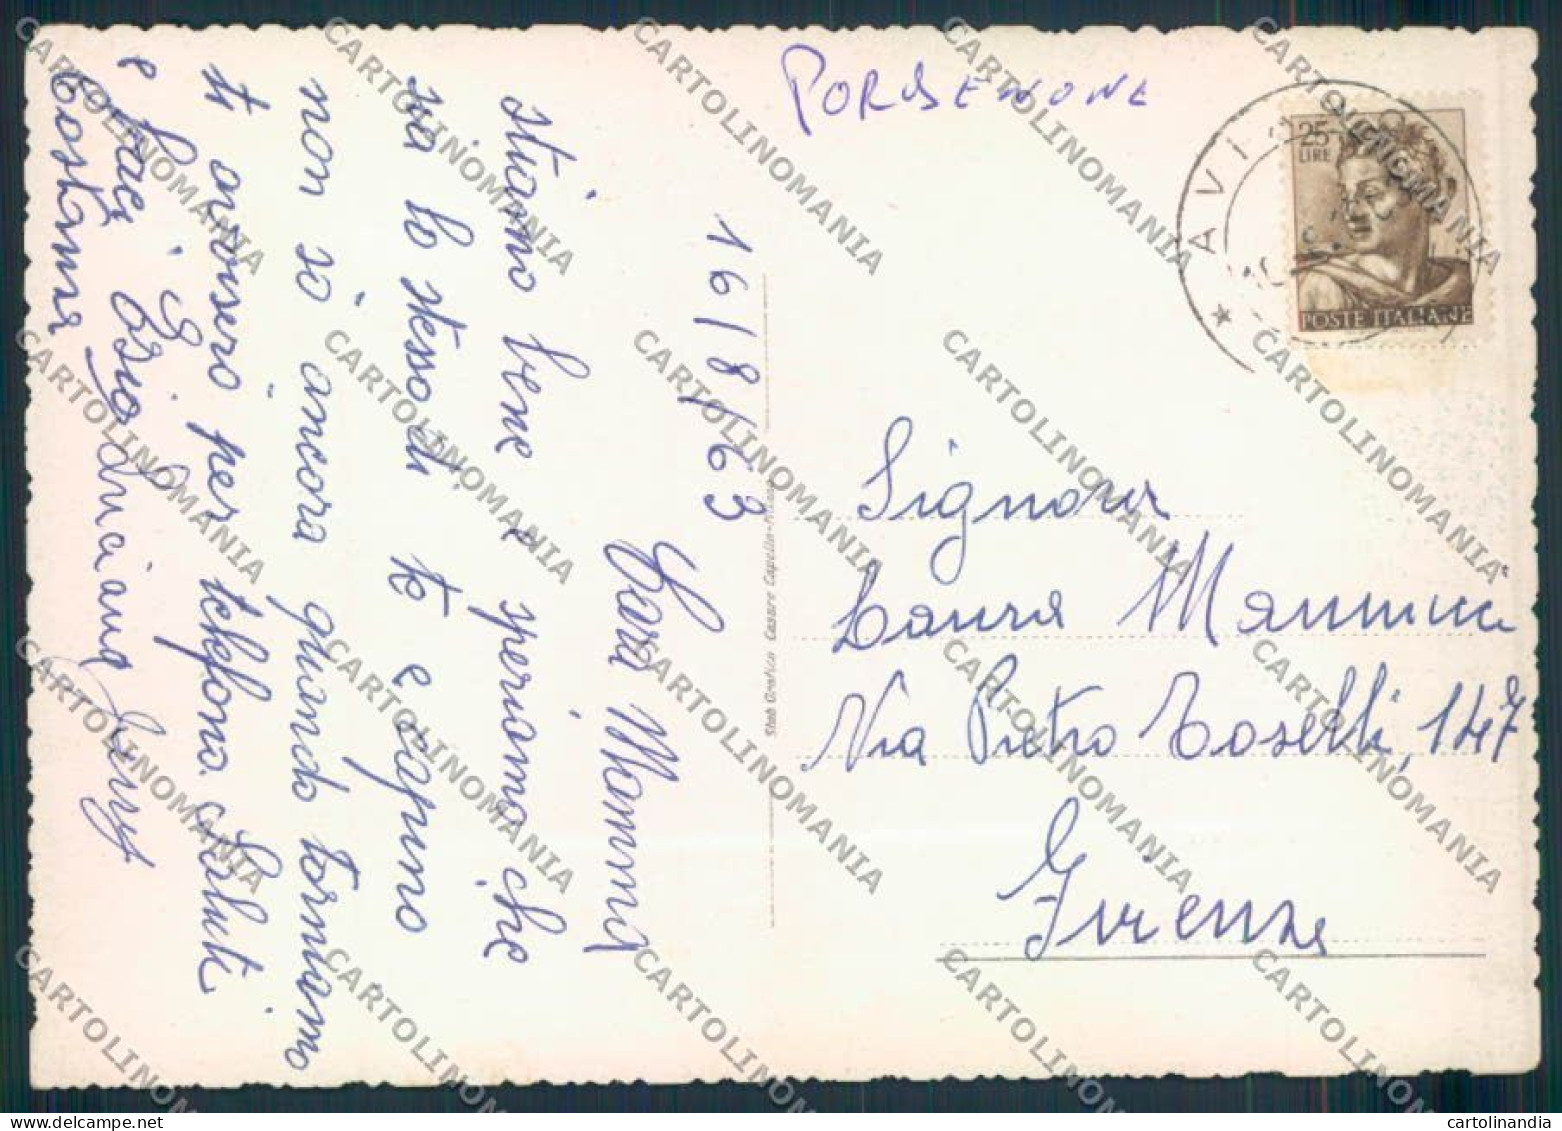 PORDENONE
AVIANO
25
LIRE
POSTE ITALIANE
16/8/63
Cara Mamma
stiamo bene e speriamo che
sia lo stesso di te e sapino
non so ancora quando torniamo
ti avviserò per telefono. Saluti
e baci Egio Luciana
Costanza
Stab. Grafico Cesare Capello - Milano
Signora
Laura
Via Pietro Toselli, 147
Firenze
CARTOLINOMANIA
cartolinandia